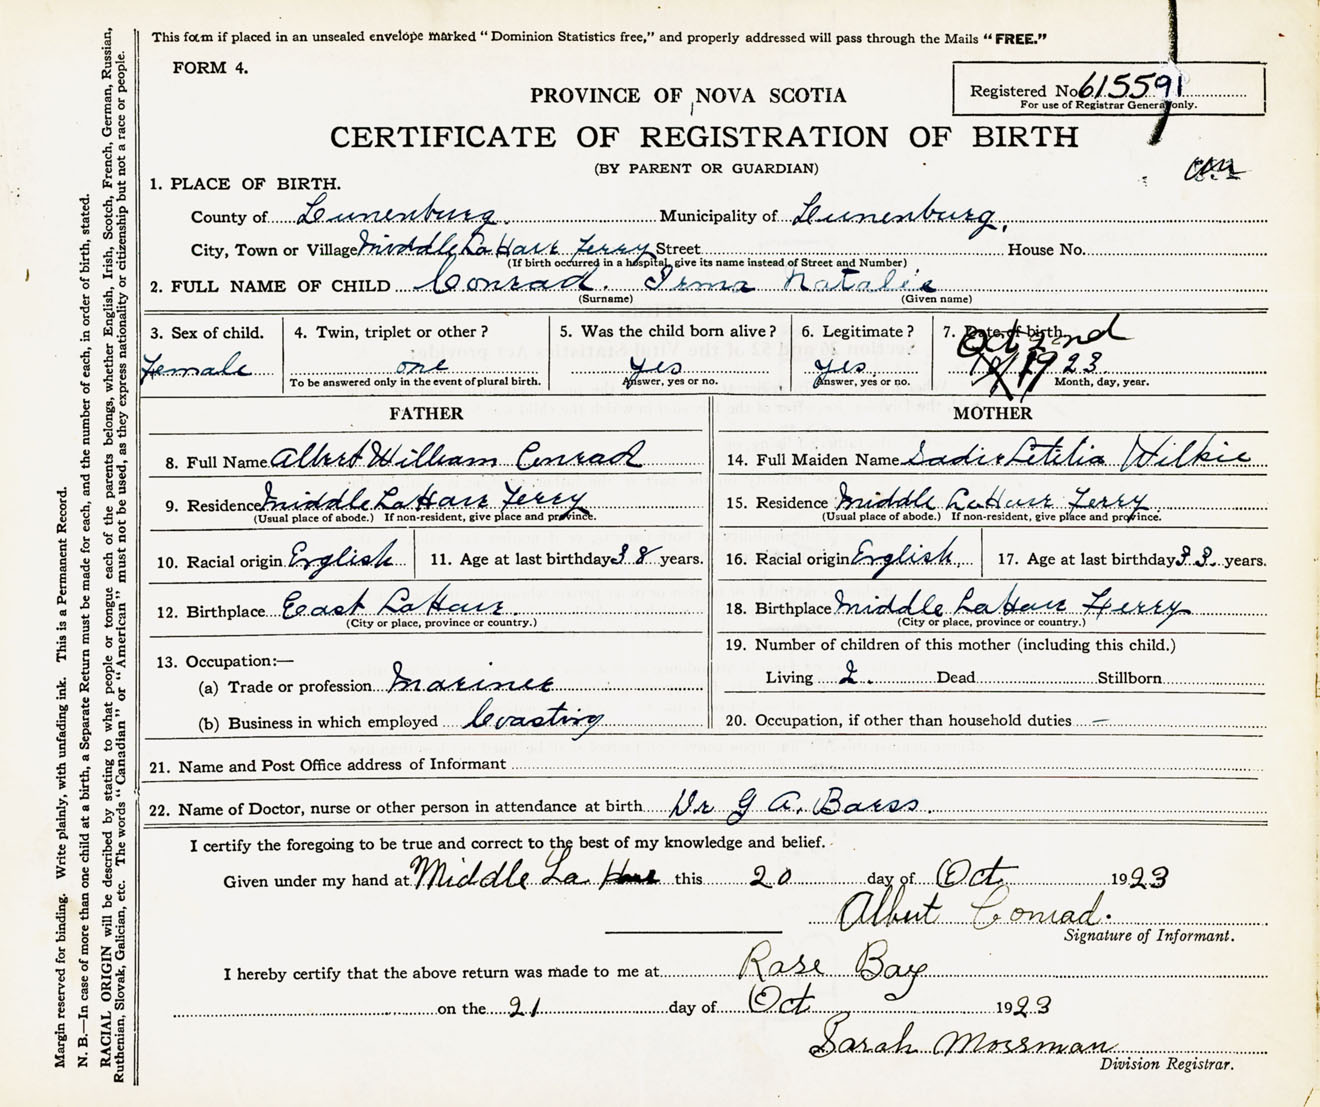 This form if placed in an unsealed envelope marked "Dominion Statistics free," and properly addressed will pass through the Mails "FREE."
FORM 4.
Registered No. 615591
For use of Registrar General only.
PROVINCE OF NOVA SCOTIA
CERTIFICATE OF REGISTRATION OF BIRTH
(BY PARENT OR GUARDIAN)
1. PLACE OF BIRTH.
County of Lunenburg. Municipality of Lunenburg.
City, Town or Village Middle LaHave Ferry Street House No.
(If birth occurred in a hospital, give its name instead of Street and Number)
2. FULL NAME OF CHILD Conrad. Irma Natalie
(Surname) (Given name)
3. Sex of child. 4. Twin, triplet or other? 5. Was the child born alive? 6. Legitimate? 7. Date of birth
Oct 2nd
Female one yes yes. 1923
To be answered only in the event of plural birth. Answer, yes or no. Answer, yes or no. Month, day, year.
FATHER MOTHER
8. Full Name Albert William Conrad 14. Full Maiden Name Sadie Letitia Wilkie
9. Residence Middle LaHave Ferry 15. Residence Middle LaHave Ferry
(Usual place of abode.) If non-resident, give place and province. (Usual place of abode.) If non-resident, give place and province.
10. Racial origin English 11. Age at last birthday 38 years. 16. Racial origin English 17. Age at last birthday 33 years.
12. Birthplace East LaHave. 18. Birthplace Middle LaHave Ferry
(City or place, province or country.) (City or place, province or country.)
19. Number of children of this mother (including this child.)
13. Occupation:—
(a) Trade or profession Mariner Living 2. Dead Stillborn
(b) Business in which employed Coasting 20. Occupation, if other than household duties –
21. Name and Post Office address of Informant
22. Name of Doctor, nurse or other person in attendance at birth Dr G A. Barss.
I certify the foregoing to be true and correct to the best of my knowledge and belief.
Given under my hand at Middle La Have this 20 day of Oct 1923
Albert Conrad.
Signature of Informant.
I hereby certify that the above return was made to me at Rose Bay
on the 21 day of Oct 1923
Sarah Mossman
Division Registrar.
Margin reserved for binding. Write plainly, with unfading ink. This is a Permanent Record.
N. B.—In case of more than one child at a birth, a Separate Return must be made for each, and the number of each, in order of birth, stated.
RACIAL ORIGIN will be described by stating to what people or tongue each of the parents belongs, whether English, Irish, Scotch, French, German, Russian,
Ruthenian, Slovak, Galician, etc. The words "Canadian" or "American" must not be used, as they express nationality or citizenship but not a race or people.